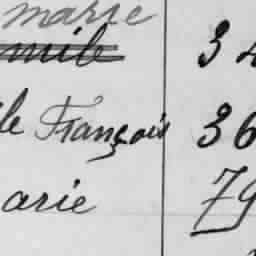 marie
mile 34
le François 36
arie 79